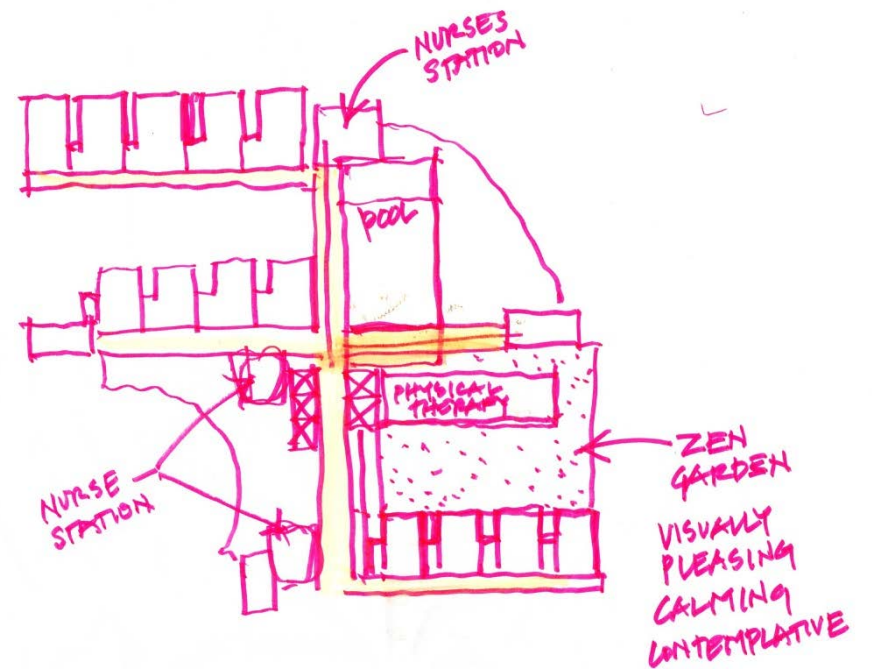 NURSES
STATION
POOL
PHYSICAL
THERAPY
NURSE
STATION
ZEN
GARDEN
VISUALLY
PLEASING
CALMING
CONTEMPLATIVE